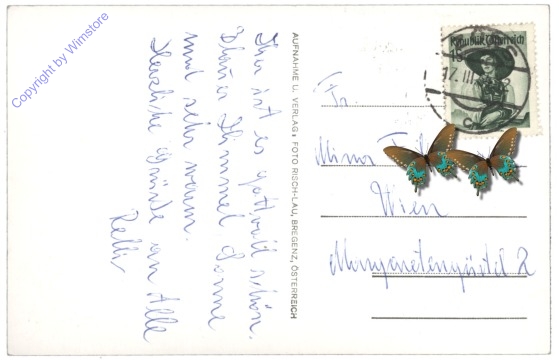 Copyright by Wimstore
Hier ist es
schön.
Blauer Himmel Sonne
und sehr warm.
Herzliche Grüße an Alle
AUFNAHME U. VERLAG: FOTO RISCH-LAU, BREGENZ, ÖSTERREICH
Republik Österreich
17. III
Fr.
Wien
Margaretengürtel 2